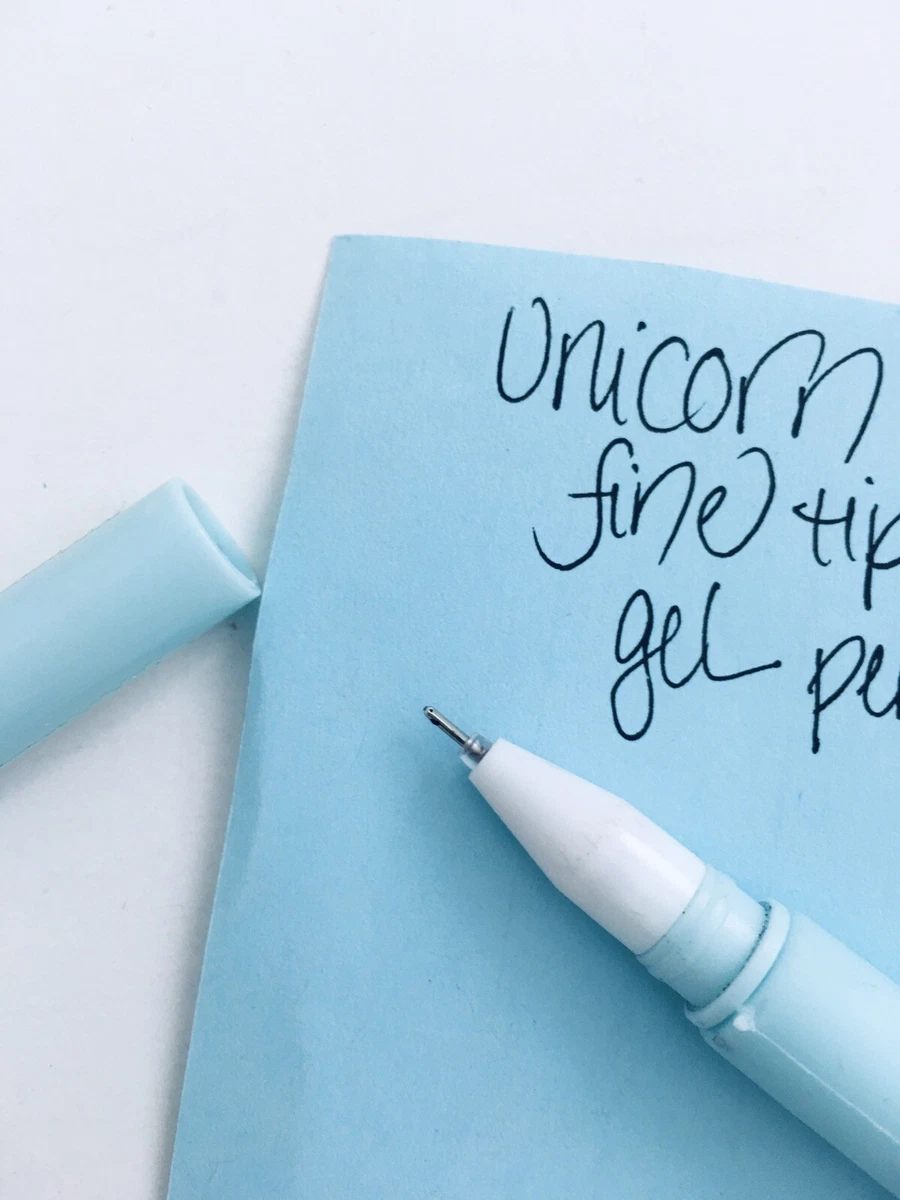 Unicorn
fine tip
gel pen